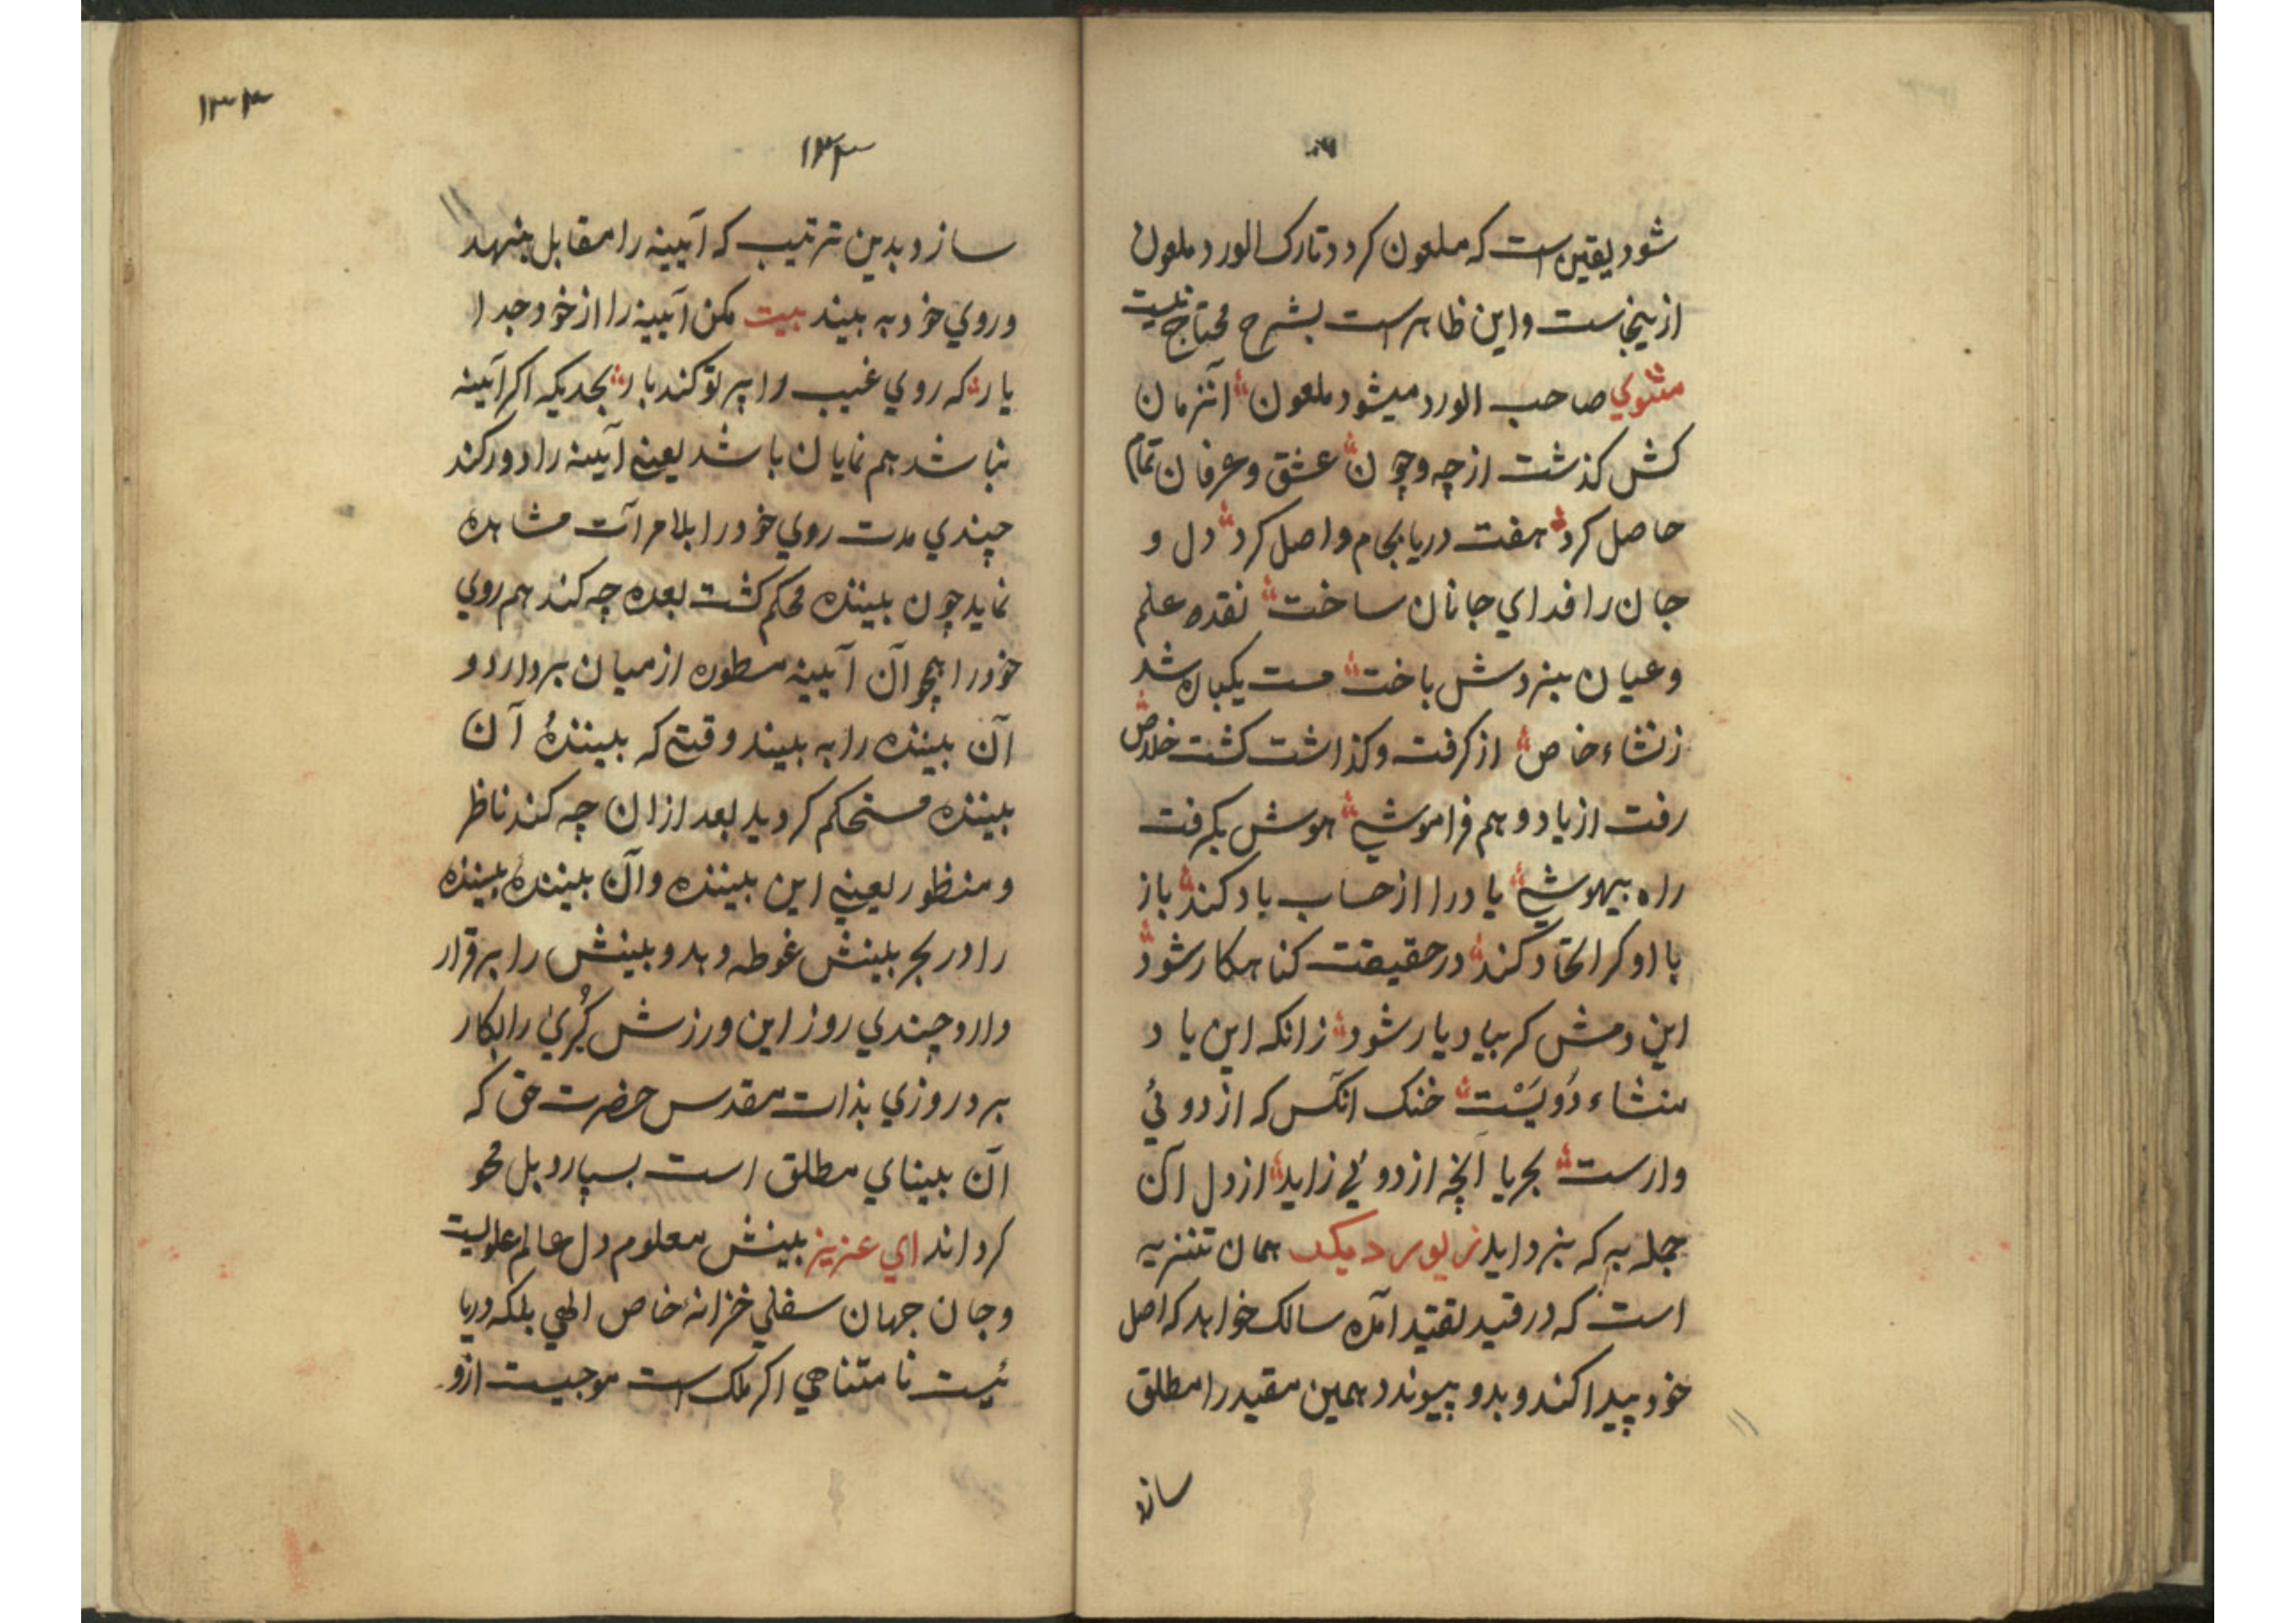 شود یقین است که ملعون کردد تارک الورد ملعون
ازینجاست واین ظاهر است بشرح محتاج نیست
مثنوي صاحب الورد میشود ملعون آنزمان
کش کذشت از چه وچون عشق وعرفان تمام
حاصل کرد هفت دریا بجام واصل کرد دل و
جان را فداي جانان ساخت نقده علم
وعیان بنردش باخت مست یکباره شد
زنشاء خاص از کرفت وکذاشت کشت خلاص
رفت از یاد و هم فراموشي هوش بکرفت
راه بیهوشي یاد را از حساب یاد کند باز
با او کر اتحاد کند در حقیقت کناهکار شود
این دمش کر بیاد یار شود زانکه این یاد
منشاء دُویَسْت خنک انکس که از دوئي
وارست بجریا آنچه از دوئي زاید از دل آن
جمله به که بزداید زیور دیکر همان تنزیه
است که در قید تقید آمده سالک خواهد که اصل
خود پیدا کند و بدو پیوندد همین مقید را مطلق
سازد
۱۳۳
۱۳۳
سازد بدین ترتیب که آیینه را مقابل بنهد
وروي خود به بیند بیت مکن آیینه را از خود جدا
یار که روي غیب را پرتو کند بار بحدیکه اکر آیینه
نباشد هم نمایان باشد یعني آیینه را دور کند
چندي مدت روي خود را بلا مرآت مشاهده
نماید چون بیننده محکم کشت بعده چه کند هم روي
خود را همچو آن آیینه مسطوره از میان بردارد و
آن بیننده را به بیند وقتي که بینندهٔ آن
بیننده مستحکم کردید بعد ازان چه کند ناظر
ومنظور یعني این بیننده وآن بینندهٔ بیننده
را در بحر بینش غوطه دهد و بینش را برقرار
دارد چندي روز این ورزش کُبري را بکار
برد روزي بذات مقدس حضرت حق که
آن بیناي مطلق است بسپارد بل محو
کرداند اي عزیز بینش معلوم دل عالم علویست
وجان جهان سفلي خزانهٔ خاص الهي بلکه دریا
ئیست نامتناهي اکر ملک است موجیست ازو